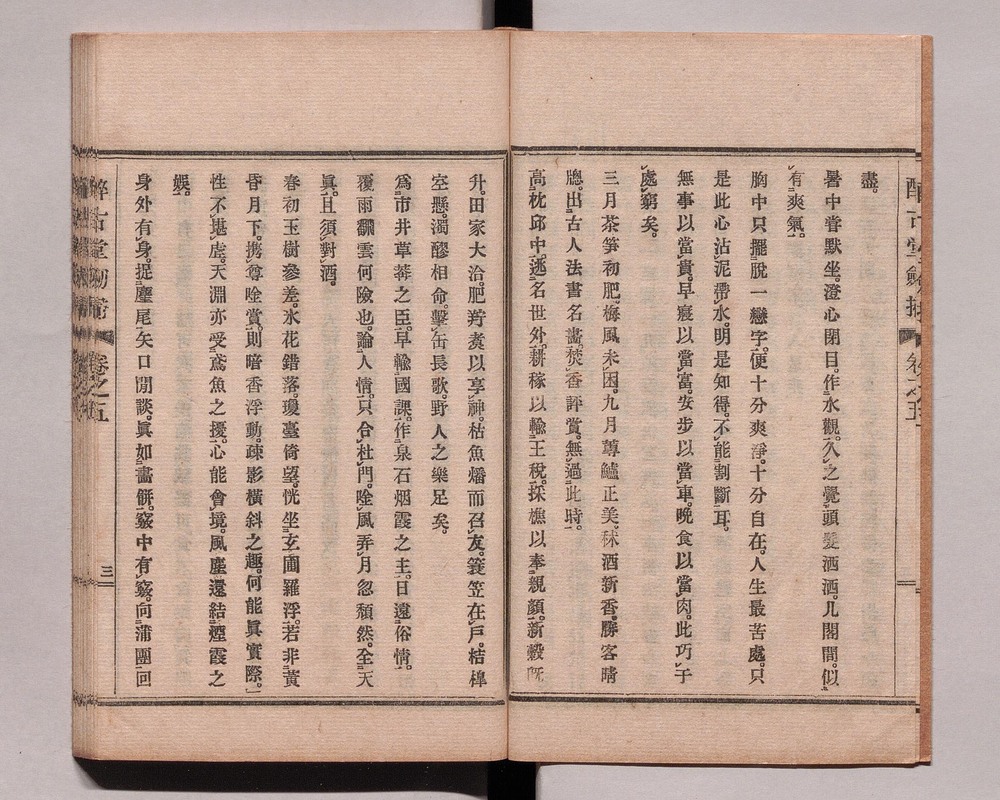 盡。
暑中嘗默坐。澄心閉目。作水觀。久之覺頭髮洒洒。几閣間。似
有爽氣。
胸中只擺脫一戀字。便十分爽淨。十分自在。人生最苦處。只
是此心沾泥帶水。明是知得。不能割斷耳。
無事以當貴。早寢以當富。安步以當車。晚食以當肉。此巧于
處窮矣。
三月茶笋初肥。梅風未困。九月蓴鱸正美。秫酒新香。勝客晴
牕。出古人法書名畫。焚香評賞。無過此時。
高枕邱中。逃名世外。耕稼以輸王稅。採樵以奉親顏。新穀既
升。田家大洽。肥羜烹以享神。枯魚燔而召友。簑笠在戶。桔槹
空懸。濁醪相命。擊缶長歌。野人之樂足矣。
爲市井草莽之臣。早輸國課。作泉石烟霞之主。日遠俗情。
覆雨飜雲何險也。論人情。只合杜門。唫風弄月忽頹然。全天
眞。且須對酒。
春初玉樹參差。氷花錯落。瓊臺倚望。恍坐玄圃羅浮。若非黃
昏月下。携尊唫賞。則暗香浮動。疎影橫斜之趣。何能眞實際。
性不堪虛。天淵亦受鳶魚之擾。心能會境。風塵還結煙霞之
娛。
身外有身。捉麈尾矢口閒談。眞如畵餅。竅中有竅。向蒲團回
醉古堂劒掃
卷之五
三